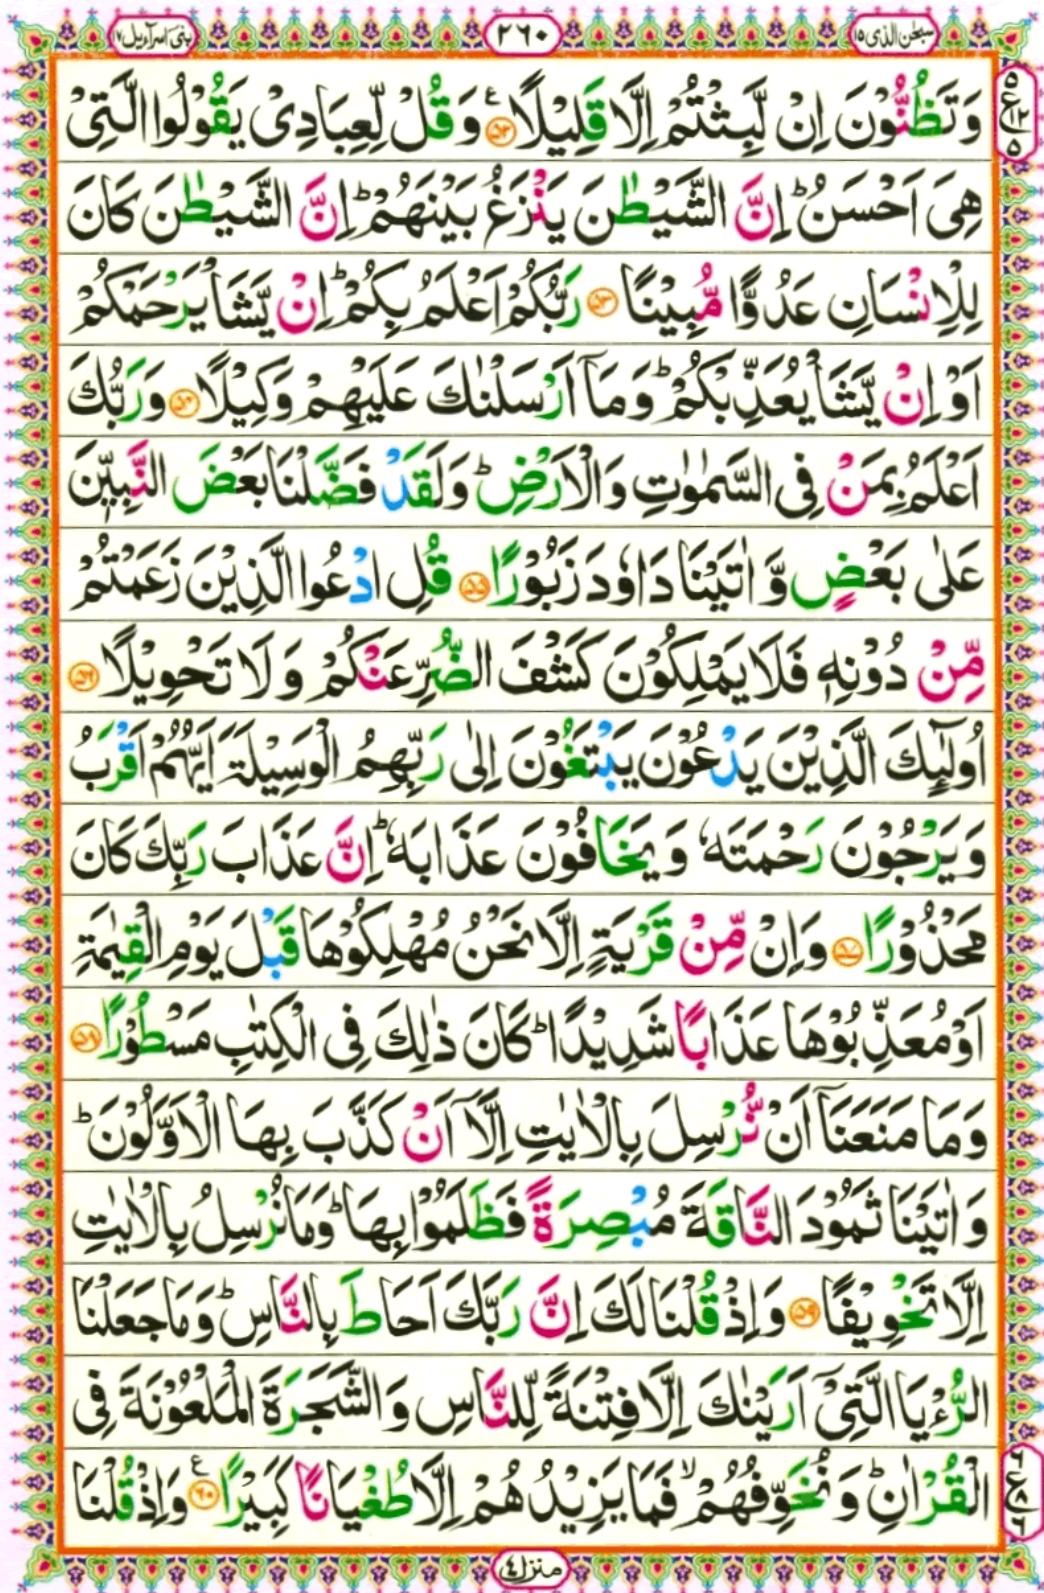 سبحٰن الذی ۱۵
۲۶۰
بنی اسرآءیل ۱۷
وَ تَظُنُّوْنَ اِنْ لَّبِثْتُمْ اِلَّا قَلِیْلًا ﴿۵۲﴾ ع وَ قُلْ لِّعِبَادِیْ یَقُوْلُوا الَّتِیْ
۵ ع ۱۲ ۵
هِیَ اَحْسَنُ ؕ اِنَّ الشَّیْطٰنَ یَنْزَغُ بَیْنَهُمْ ؕ اِنَّ الشَّیْطٰنَ كَانَ
لِلْاِنْسَانِ عَدُوًّا مُّبِیْنًا ﴿۵۳﴾ رَبُّكُمْ اَعْلَمُ بِكُمْ ؕ اِنْ یَّشَاْ یَرْحَمْكُمْ
اَوْ اِنْ یَّشَاْ یُعَذِّبْكُمْ ؕ وَ مَاۤ اَرْسَلْنٰكَ عَلَیْهِمْ وَكِیْلًا ﴿۵۴﴾ وَ رَبُّكَ
اَعْلَمُ بِمَنْ فِی السَّمٰوٰتِ وَ الْاَرْضِ ؕ وَ لَقَدْ فَضَّلْنَا بَعْضَ النَّبِیّٖنَ
عَلٰی بَعْضٍ وَّ اٰتَیْنَا دَاوٗدَ زَبُوْرًا ﴿۵۵﴾ قُلِ ادْعُوا الَّذِیْنَ زَعَمْتُمْ
مِّنْ دُوْنِهٖ فَلَا یَمْلِكُوْنَ كَشْفَ الضُّرِّ عَنْكُمْ وَ لَا تَحْوِیْلًا ﴿۵۶﴾
اُولٰٓىِٕكَ الَّذِیْنَ یَدْعُوْنَ یَبْتَغُوْنَ اِلٰی رَبِّهِمُ الْوَسِیْلَةَ اَیُّهُمْ اَقْرَبُ
وَ یَرْجُوْنَ رَحْمَتَهٗ وَ یَخَافُوْنَ عَذَابَهٗ ؕ اِنَّ عَذَابَ رَبِّكَ كَانَ
مَحْذُوْرًا ﴿۵۷﴾ وَ اِنْ مِّنْ قَرْیَةٍ اِلَّا نَحْنُ مُهْلِكُوْهَا قَبْلَ یَوْمِ الْقِیٰمَةِ
اَوْ مُعَذِّبُوْهَا عَذَابًا شَدِیْدًا ؕ كَانَ ذٰلِكَ فِی الْكِتٰبِ مَسْطُوْرًا ﴿۵۸﴾
وَ مَا مَنَعَنَاۤ اَنْ نُّرْسِلَ بِالْاٰیٰتِ اِلَّاۤ اَنْ كَذَّبَ بِهَا الْاَوَّلُوْنَ ؕ
وَ اٰتَیْنَا ثَمُوْدَ النَّاقَةَ مُبْصِرَةً فَظَلَمُوْا بِهَا ؕ وَ مَا نُرْسِلُ بِالْاٰیٰتِ
اِلَّا تَخْوِیْفًا ﴿۵۹﴾ وَ اِذْ قُلْنَا لَكَ اِنَّ رَبَّكَ اَحَاطَ بِالنَّاسِ ؕ وَ مَا جَعَلْنَا
الرُّءْیَا الَّتِیْۤ اَرَیْنٰكَ اِلَّا فِتْنَةً لِّلنَّاسِ وَ الشَّجَرَةَ الْمَلْعُوْنَةَ فِی
الْقُرْاٰنِ ؕ وَ نُخَوِّفُهُمْ ۙ فَمَا یَزِیْدُهُمْ اِلَّا طُغْیَانًا كَبِیْرًا ﴿۶۰﴾ ع وَ اِذْ قُلْنَا
۶ ع ۸ ۶
منزل ۴